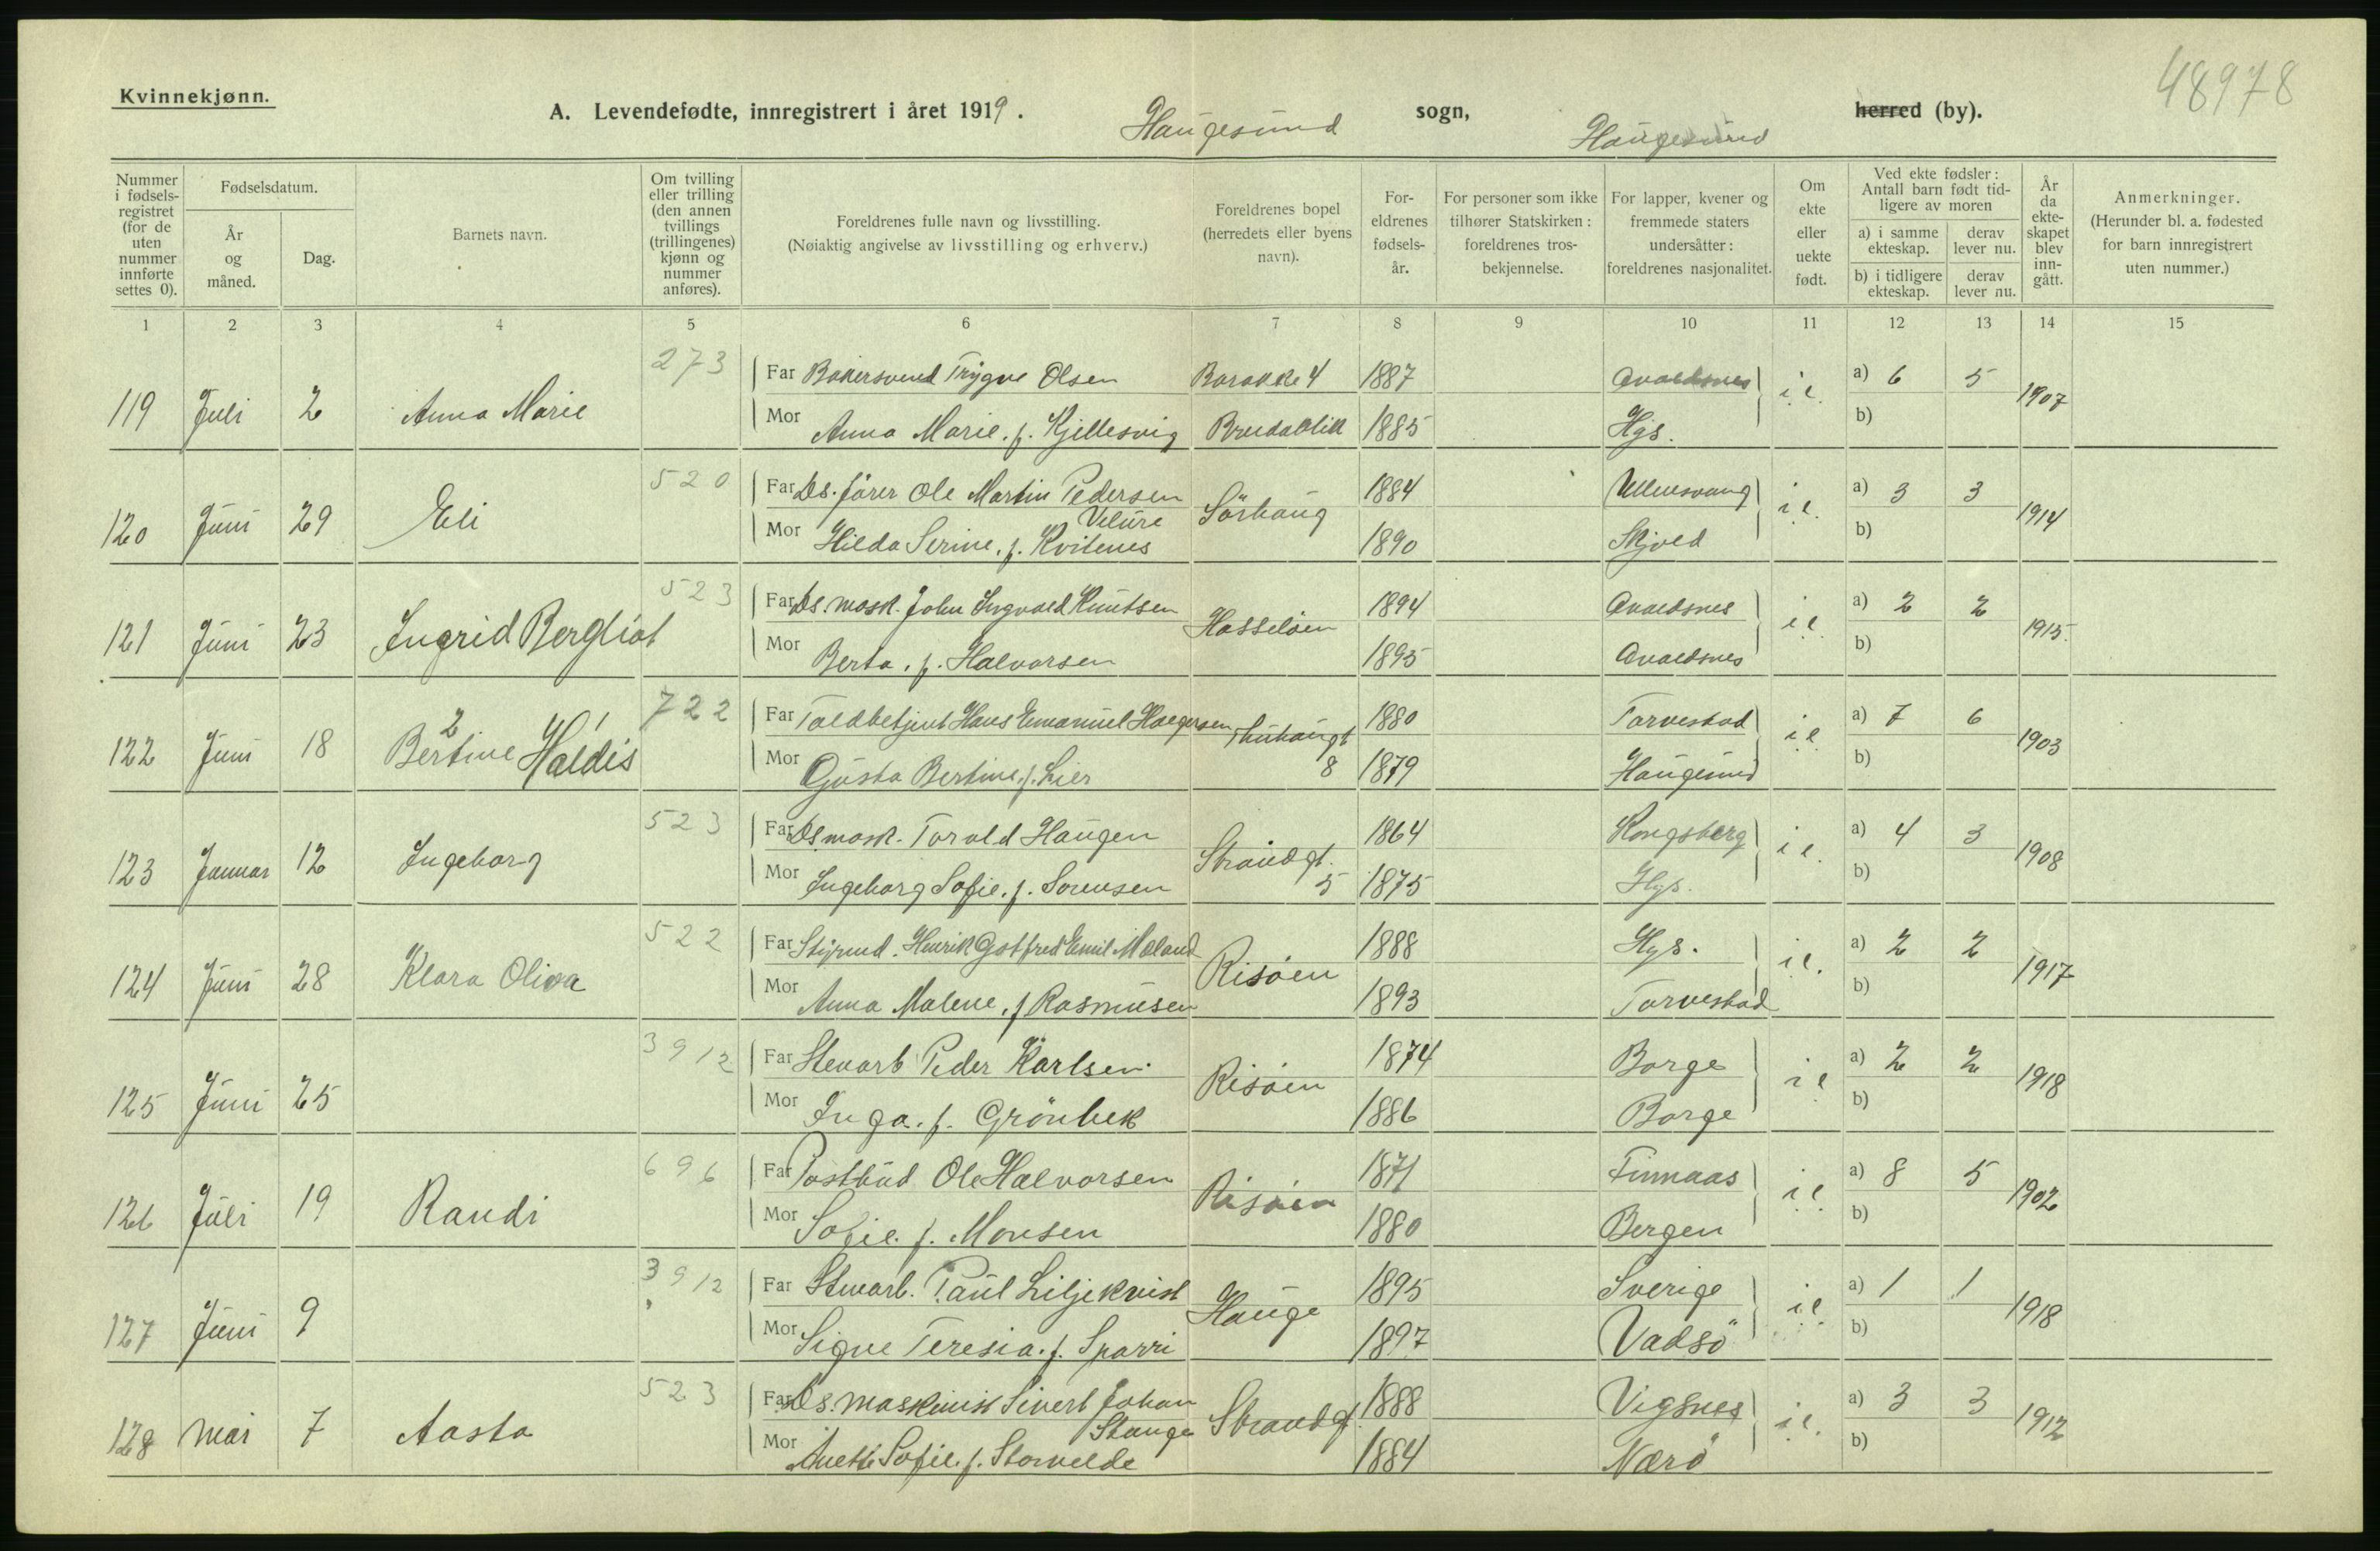 48978
Kvinnekjønn.
A. Levendefødte, innregistrert i året 1919.
Haugesund sogn, Haugesund herred (by).
Nummer i fødsels-registret (for de uten nummer innførte settes 0).
Fødselsdatum.
År og måned.
Dag.
Barnets navn.
Om tvilling eller trilling (den annen tvillings (trillingenes) kjønn og nummer anføres).
Foreldrenes fulle navn og livsstilling.
(Nøiaktig angivelse av livsstilling og erhverv.)
Foreldrenes bopel (herredets eller byens navn).
For-eldrenes fødsels-år.
For personer som ikke tilhører Statskirken: foreldrenes tros-bekjennelse.
For lapper, kvener og fremmede staters undersåtter: foreldrenes nasjonalitet.
Om ekte eller uekte født.
Ved ekte fødsler: Antall barn født tid-ligere av moren
a) i samme ekteskap.
derav lever nu.
b) i tidligere ekteskap.
derav lever nu.
År da ekte-skapet blev inn-gått.
Anmerkninger.
(Herunder bl. a. fødested for barn innregistrert uten nummer.)
1 2 3 4 5 6 7 8 9 10 11 12 13 14 15
273 Far Bakersvend Trygve Olsen Barakke 4 1887 Avaldsnes a) 6 5
119 Juli 2 Anna Marie i.e. 1907
Mor Anna Marie. f. Kjellesvig Breidablik 1885 Hgs. b)
520 Far Ds. fører Ole Martin Pedersen 1884 Ullensvang a) 3 3
Velure
120 Juni 29 Eli Sörhaug i.e. 1914
Mor Hilda Serine. f. Kvitenes 1890 Skjold b)
523 Far Ds. mask. John Ingvald Knutsen 1894 Avaldsnes a) 2 2
121 Juni 23 Ingrid Bergliot Hasseløen i.e. 1915.
Mor Berta. f. Halvorsen 1895 Avaldsnes b)
722 Far Toldbetjent Hans Emanuel Holgersen 1880 Torvestad a) 7 6
2 1
122 Juni 18 Bertine Haldis i.e. 1903
Mor Gusta Bertine. f. Lier 8 1879 Haugesund b)
523 Far Ds mask. Torald Haugen 1864 Kongsberg a) 4 3
123 Januar 12 Ingeborg Strandgt. i.e. 1908
Mor Ingeborg Sofie. f. Sorensen 5 1875 Hgs. b)
522 Far Styrmd. Henrik Gotfred Emil Mæland 1888 Hgs. a) 2 2
124 Juni 28 Klara Oliva Risøen i.e. 1917
Mor Anna Malene. f Rasmusen 1893 Torvestad b)
3912 Far Stenarb Peder Karlsen. 1874 Borge a) 2 2
125 Juni 25 Risøen i e 1918
Mor Inga. f. Grönbek 1886 Borge b)
696 Far Postbud Ole Halvorsen 1871 Finnaas a) 8 5
126 Juli 19 Randi Risøen i e 1902
Mor Sofie. f. Monsen 1880 Bergen b)
3912 Far Stenarb. Paul Liljekvist 1895 Sverige a) 1 1
127 Juni 9 Hauge i e 1918
Mor Signe Teresia. f. Sparri 1897 Vadsö b)
523 Far Ds. maskinist Sivert Johan 1888 Vigsnes a) 3 3
Stange
128 Mai 7 Aasta Strandgt. i.e. 1912
Mor Anette Sofie. f. Storvelde 1884 Nærö b)